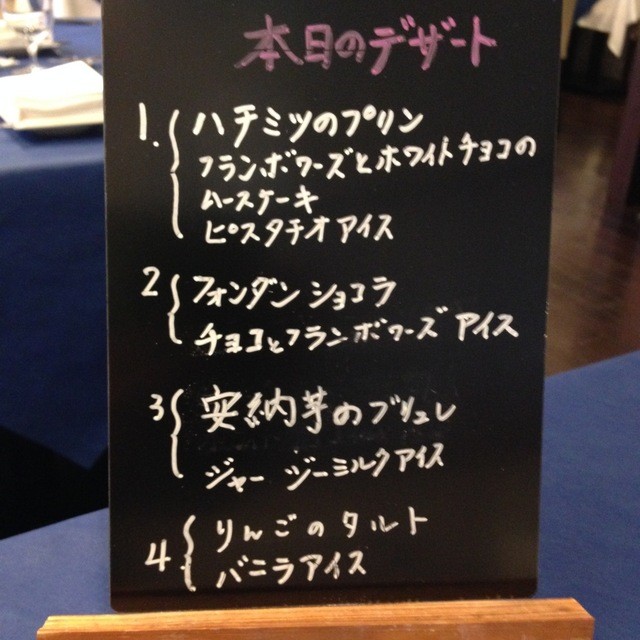 本日のデザート
1. ハチミツのプリン
フランボワーズとホワイトチョコの
ムースケーキ
ピスタチオアイス
2 フォンダンショコラ
チョコとフランボワーズアイス
3 安納芋のブリュレ
ジャージーミルクアイス
4. りんごのタルト
バニラアイス